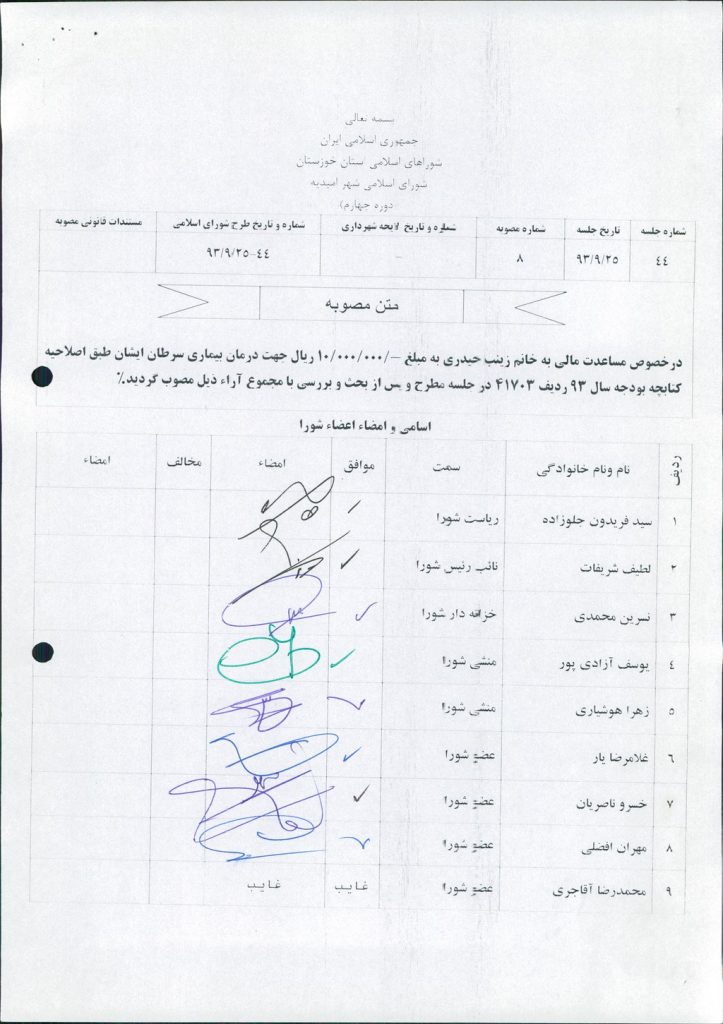 بسمه تعالی
جمهوری اسلامی ایران
شوراهای اسلامی استان خوزستان
شورای اسلامی شهر امیدیه
(دوره چهارم)
شماره جلسه تاریخ جلسه شماره مصوبه شماره و تاریخ لایحه شهرداری شماره و تاریخ طرح شورای اسلامی مستندات قانونی مصوبه
٤٤ ۹۳/۹/۲٥ ۸ – ٤٤-۹۳/۹/۲٥
متن مصوبه
درخصوص مساعدت مالی به خانم زینب حیدری به مبلغ –/۱۰/۰۰۰/۰۰۰ ریال جهت درمان بیماری سرطان ایشان طبق اصلاحیه
کتابچه بودجه سال ۹۳ ردیف ۴۱۷۰۳ در جلسه مطرح و پس از بحث و بررسی با مجموع آراء ذیل مصوب گردید.٪
اسامی و امضاء اعضاء شورا
ردیف نام ونام خانوادگی سمت موافق امضاء مخالف امضاء
۱ سید فریدون جلوزاده ریاست شورا
۲ لطیف شریفات نائب رئیس شورا
۳ نسرین محمدی خزانه دار شورا
٤ یوسف آزادی پور منشی شورا
٥ زهرا هوشیاری منشی شورا
٦ غلامرضا یار عضو شورا
۷ خسرو ناصریان عضو شورا
۸ مهران افضلی عضو شورا
۹ محمدرضا آقاجری عضو شورا غایب غایب